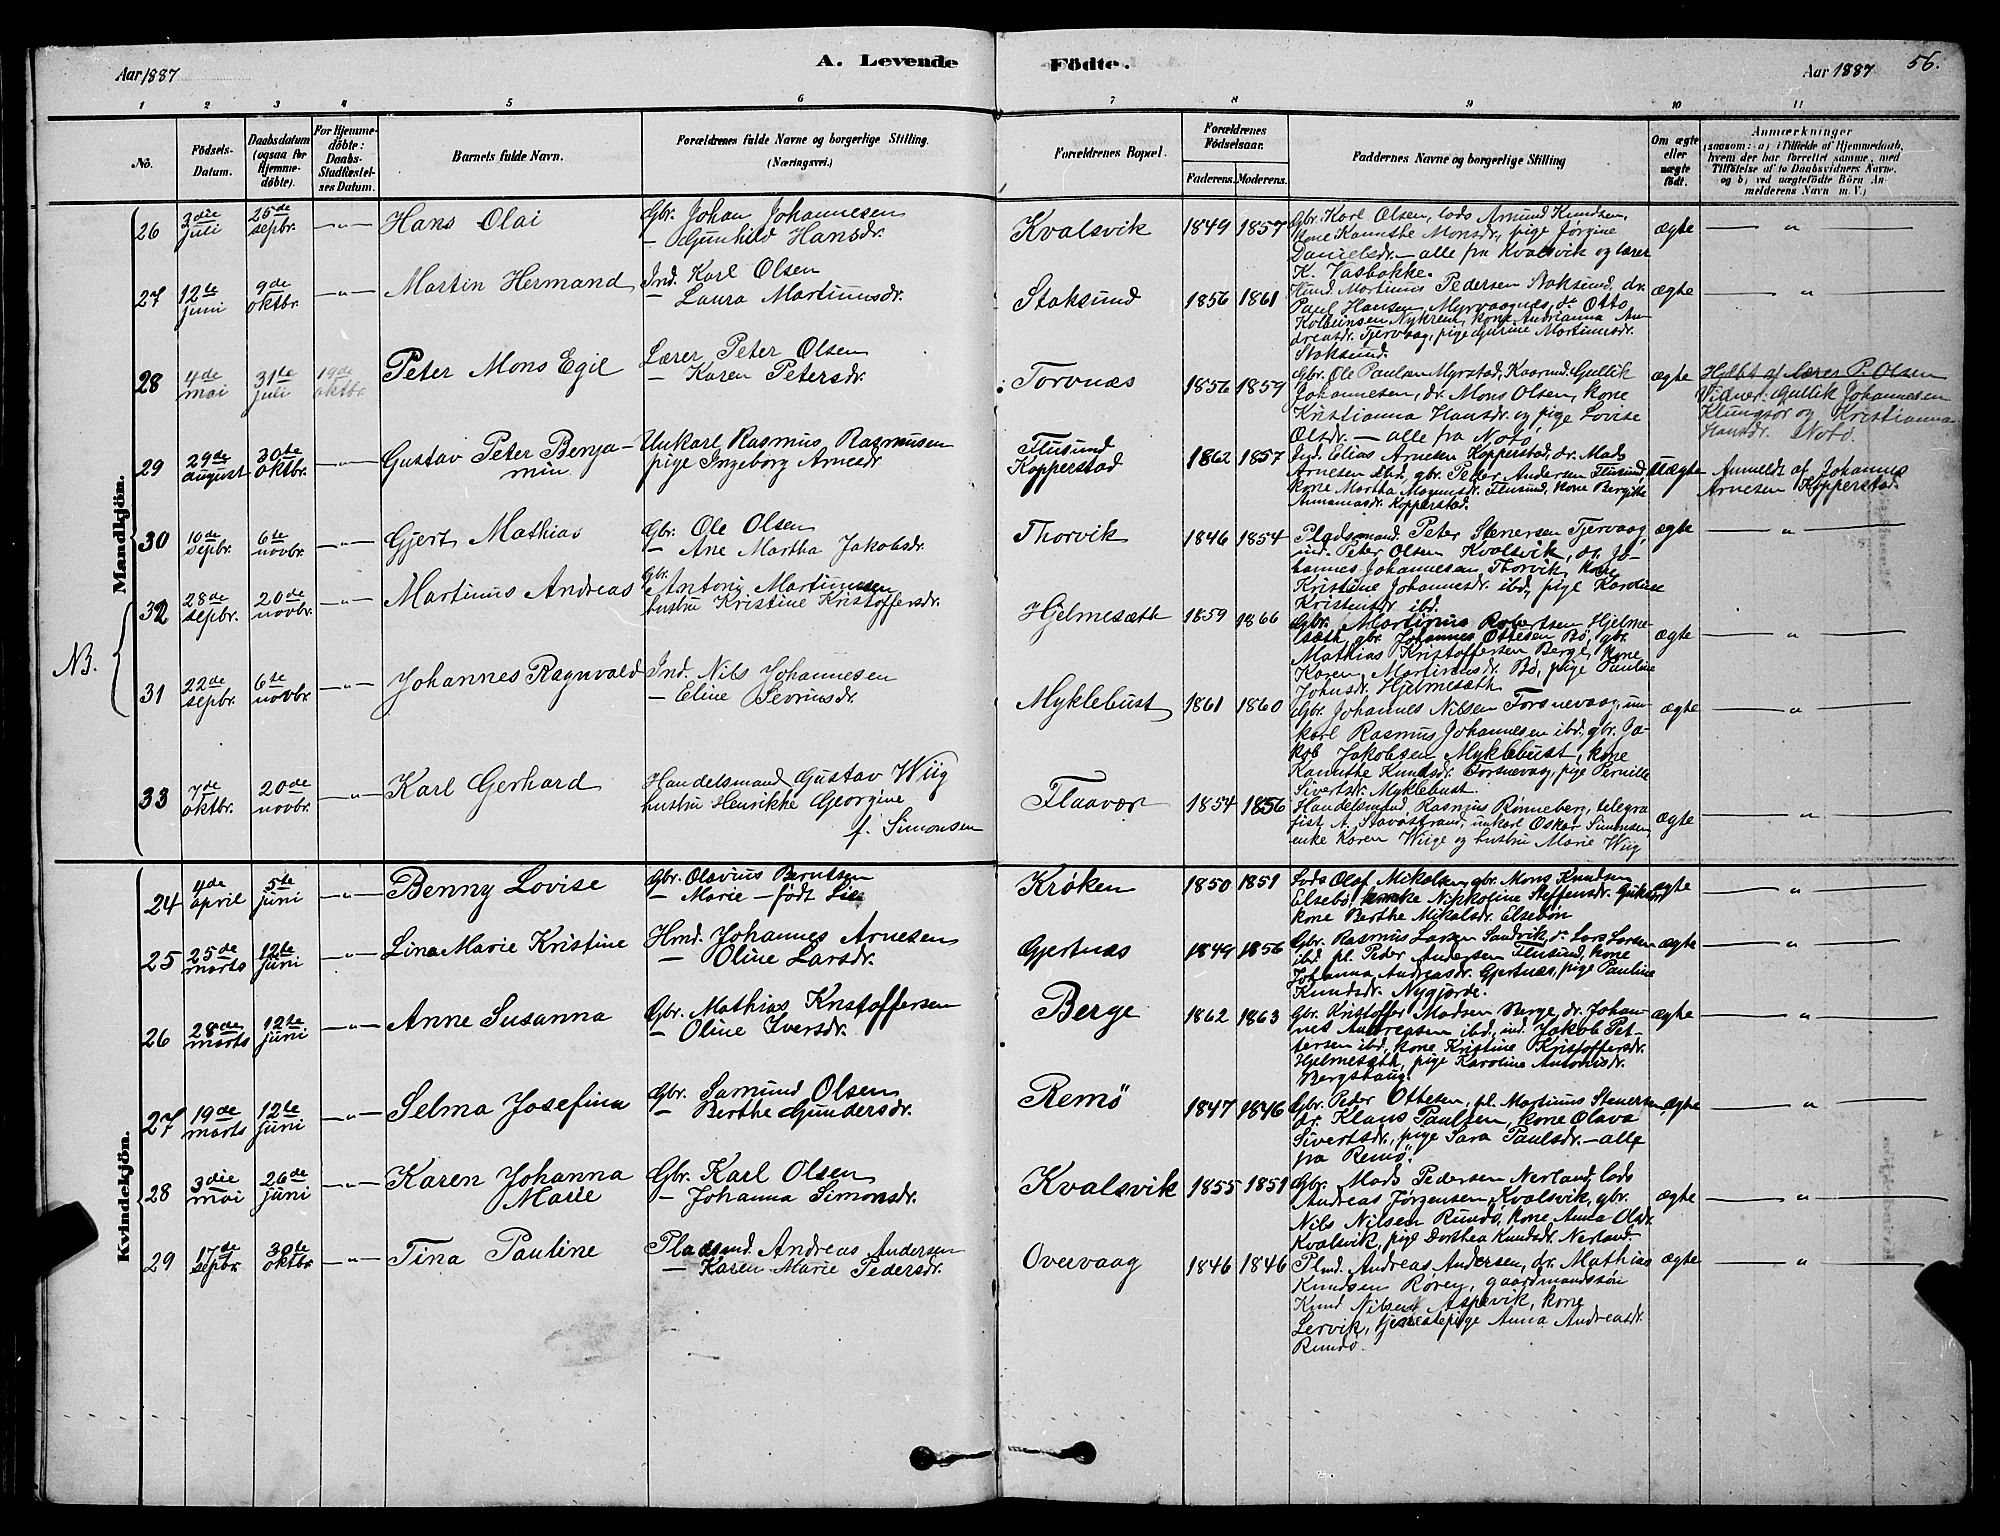 Aar 1887
A. Levende
Födte.
Aar 1887
56.
1 2 3 4 5 6 7 8 9 10 11
No.
Födsels-
Datum.
Daabsdatum
(ogsaa for
Hjemme-
döbte).
For Hjemme-
döbte:
Daabs-
Stadfæstel-
ses Datum.
Barnets fulde Navn.
Forældrenes fulde Navne og borgerlige Stilling.
(Næringsvei.)
Forældrenes Bopæl.
Forældrenes
Födselsaar.
Faderens. Moderens.
Faddernes Navne og borgerlige Stilling
Om ægte
eller
uægte
födt.
Anmærkninger
(saasom: a) i Tilfælde af Hjemmedaab,
hvem der har forrettet samme, med
Tilföielse af to Daabsvidners Navne.
og b) ved uægtefödte Börn An-
melderens Navn m. V.)
Mandkjön.
26 3die juli 25de sepbr. —"— Hans Olai
Gbr. Johan Johannesen
— Gunhild Hansdr.
Kvalsvik 1849 1857
Gbr. Karl Olsen, lods Amund Knudsen,
kone Kanuthe Monsdr., pige Jørgine
Danielsdr. — alle fra Kvalsvik og lærer
K. Vasbakke.
ægte — " —
27 12te juni 9de oktbr. —"— Martin Hermand
Ind. Karl Olsen
— Laura Martinusdr.
Stoksund 1856 1861
Hmd. Martinus Pedersen Stoksund, dr.
Paul Hansen, Myrvaagnæs, do Otto
Kolbeinsen Nykrem, kone Andrianna An-
dreasdr. Tjervaag, pige Gurine Martinusdr.
Stoksund.
ægte — " —
28 4de mai 31te juli 19de oktbr. Peter Mons Egil
Lærer Peter Olsen
— Karen Petersdr.
Torvnæs 1856 1859
Gbr. Ole Paulsen Myrstad, Kaarmd. Gullik
Johannesen, dr. Mons Olsen, kone
Kristianna Hansdr. og pige Lovise
Olsdr. — alle fra Notø
ægte
Hjdbt af lærer P. Olsen
Vidner: Gullik Johannesen
Klungsør og Kristianna
Hansdr. Notø.
29 29de august 30te oktbr. —"— Gustav Peter Benja-
min.
Unkarl Rasmus Rasmusen
pige Ingeborg Arnesdr
Flusund
Kopperstad
1862 1857
Ind. Elias Arnesen Kopperstad, dr. Mads
Arnesen ibd., gbr. Peder Andersen Flusund,
kone Martha Magnusdr. Flusund, kone Bergithe
Ananiasdr. Kopperstad.
uægte
Anmeldt af Johannes
Arnesen Kopperstad.
30 10de sepbr. 6te novbr. —"— Gjert Mathias
Gbr. Ole Olsen
— Ane Martha Jakobsdr.
Thorvik 1846 1854
Pladsmand. Peter Stenersen Tjervaag,
ind. Peter Olsen Kvalsvik, dr. Jo-
hannes Johannesen Thorvik, kone
Kristine Johannesdr. ibd., pige Karoline
Kristensdr. ibd.
ægte — " —
NB.
32 28de sepbr. 20de novbr. —"— Martinus Andreas
Gbr. Antoni Martinussen
hustru Kristine Kristoffersdr.
Hjelmesæth 1859 1866
Gbr. Martinius Robertsen Hjelme-
sæth, gbr. Johannes Ottesen Bø, gbr.
Mathias Kristoffersen Berge, kone
Karen Martinusdr. Bø, pige Pauline
Johnsdr. Hjelmesæth
ægte — " —
31 22de sepbr. 6te novbr. —"— Johannes Ragnvald
Ind. Nils Johannesen
— Eline Sevrinsdr.
Myklebust 1861 1860
Gbr. Johannes Nilsen Torsnevaag, un-
karl Rasmus Johannesen ibd., gbr. Ja-
kob Jakobsen Myklebust, kone
Kanuthe Knudsdr. Torsnevaag, pige Pernille
Sivertsdr. Myklebust.
ægte — " —
33 7de oktbr. 20de novbr. —"— Karl Gerhard
Handelsmand Gustav Wiig
hustru Henrikke Georgine
f. Simonsen
Flaavær 1854 1856
Handelsmand Rasmus Rønneberg, telegra
fist A. Stavøstrand, unkarl Oskar Simonsen
enke Karen Wiig og hustru Marie Wiig
ægte — " —
Kvindekjön.
24 4de april 5te juni —"— Benny Lovise
Gbr. Olavius Berntsen
— Marie — født Lie
Krøken 1850 1851
Lods Olaf Mikalsen, gbr. Mons Knudsen
Elsebø, enke Nikoline Steffensdr.
kone Berthe Mikalsdr. Elsebøn
ægte — " —
25 25de marts 12te juni —"— Lina Marie Kristine
Hmd. Johannes Arnesen
— Oline Larsdr.
Gjertnæs 1849 1856
Gbr. Rasmus Larsen Sandvik, do Lars Larsen
ibd pl. Peder Andersen Flusund, kone
Johanna Andreasdr. Gjertnæs, pige Pauline
Knudsdr. Nygjørde.
ægte — " —
26 28de marts 12te juni —"— Anne Susanna
Gbr. Mathias Kristoffersen
— Oline Iversdr.
Berge 1862 1863
Gbr. Kristoffer Madsen Berge, dr. Johan-
nes Andreasen ibd., ind. Jakob Pet-
tersen ibd., kone Kristine Kristoffersdr.
Hjelmesæth, pige Karoline Antonisdr.
Bergshaug.
ægte — " —
27 19de marts 12te juni —"— Selma Josefina
Gbr. Samund Olsen
— Berthe Gundersdr.
Remø 1847 1846
Gbr. Peder Ottesen, pl. Martinus Stenersen,
dr. Klaus Paulsen, kone Olava
Sivertsdr., pige Sara Paulsdr. — alle
fra Remø.
ægte — " —
28 3die mai 26de juni —"— Karen Johanna
Marie
Gbr. Karl Olsen
— Johanna Simonsdr.
Kvalsvik 1855 1851
Gbr. Mads Pedersen Nerland, lods
Andreas Jørgensen Kvalsvik, gbr.
Nils Nilsen Rundø, kone Anna Olsdr.
Kvalsvik, pige Dorthea Knudsdr. Nerland.
ægte — " —
29 17de sepbr. 30te oktbr. —"— Tina Pauline
Pladsmd. Andreas Andersen
— Karen Marie Pedersdr.
Overvaag 1846 1846
Plmd. Andreas Andersen, dr. Mathias
Knudsen Røren, gaardmandssøn
Knud Nilsen Aspevik, kone
Lervik, tjenestepige Anna Andreasdr.
Rundø.
ægte — " —